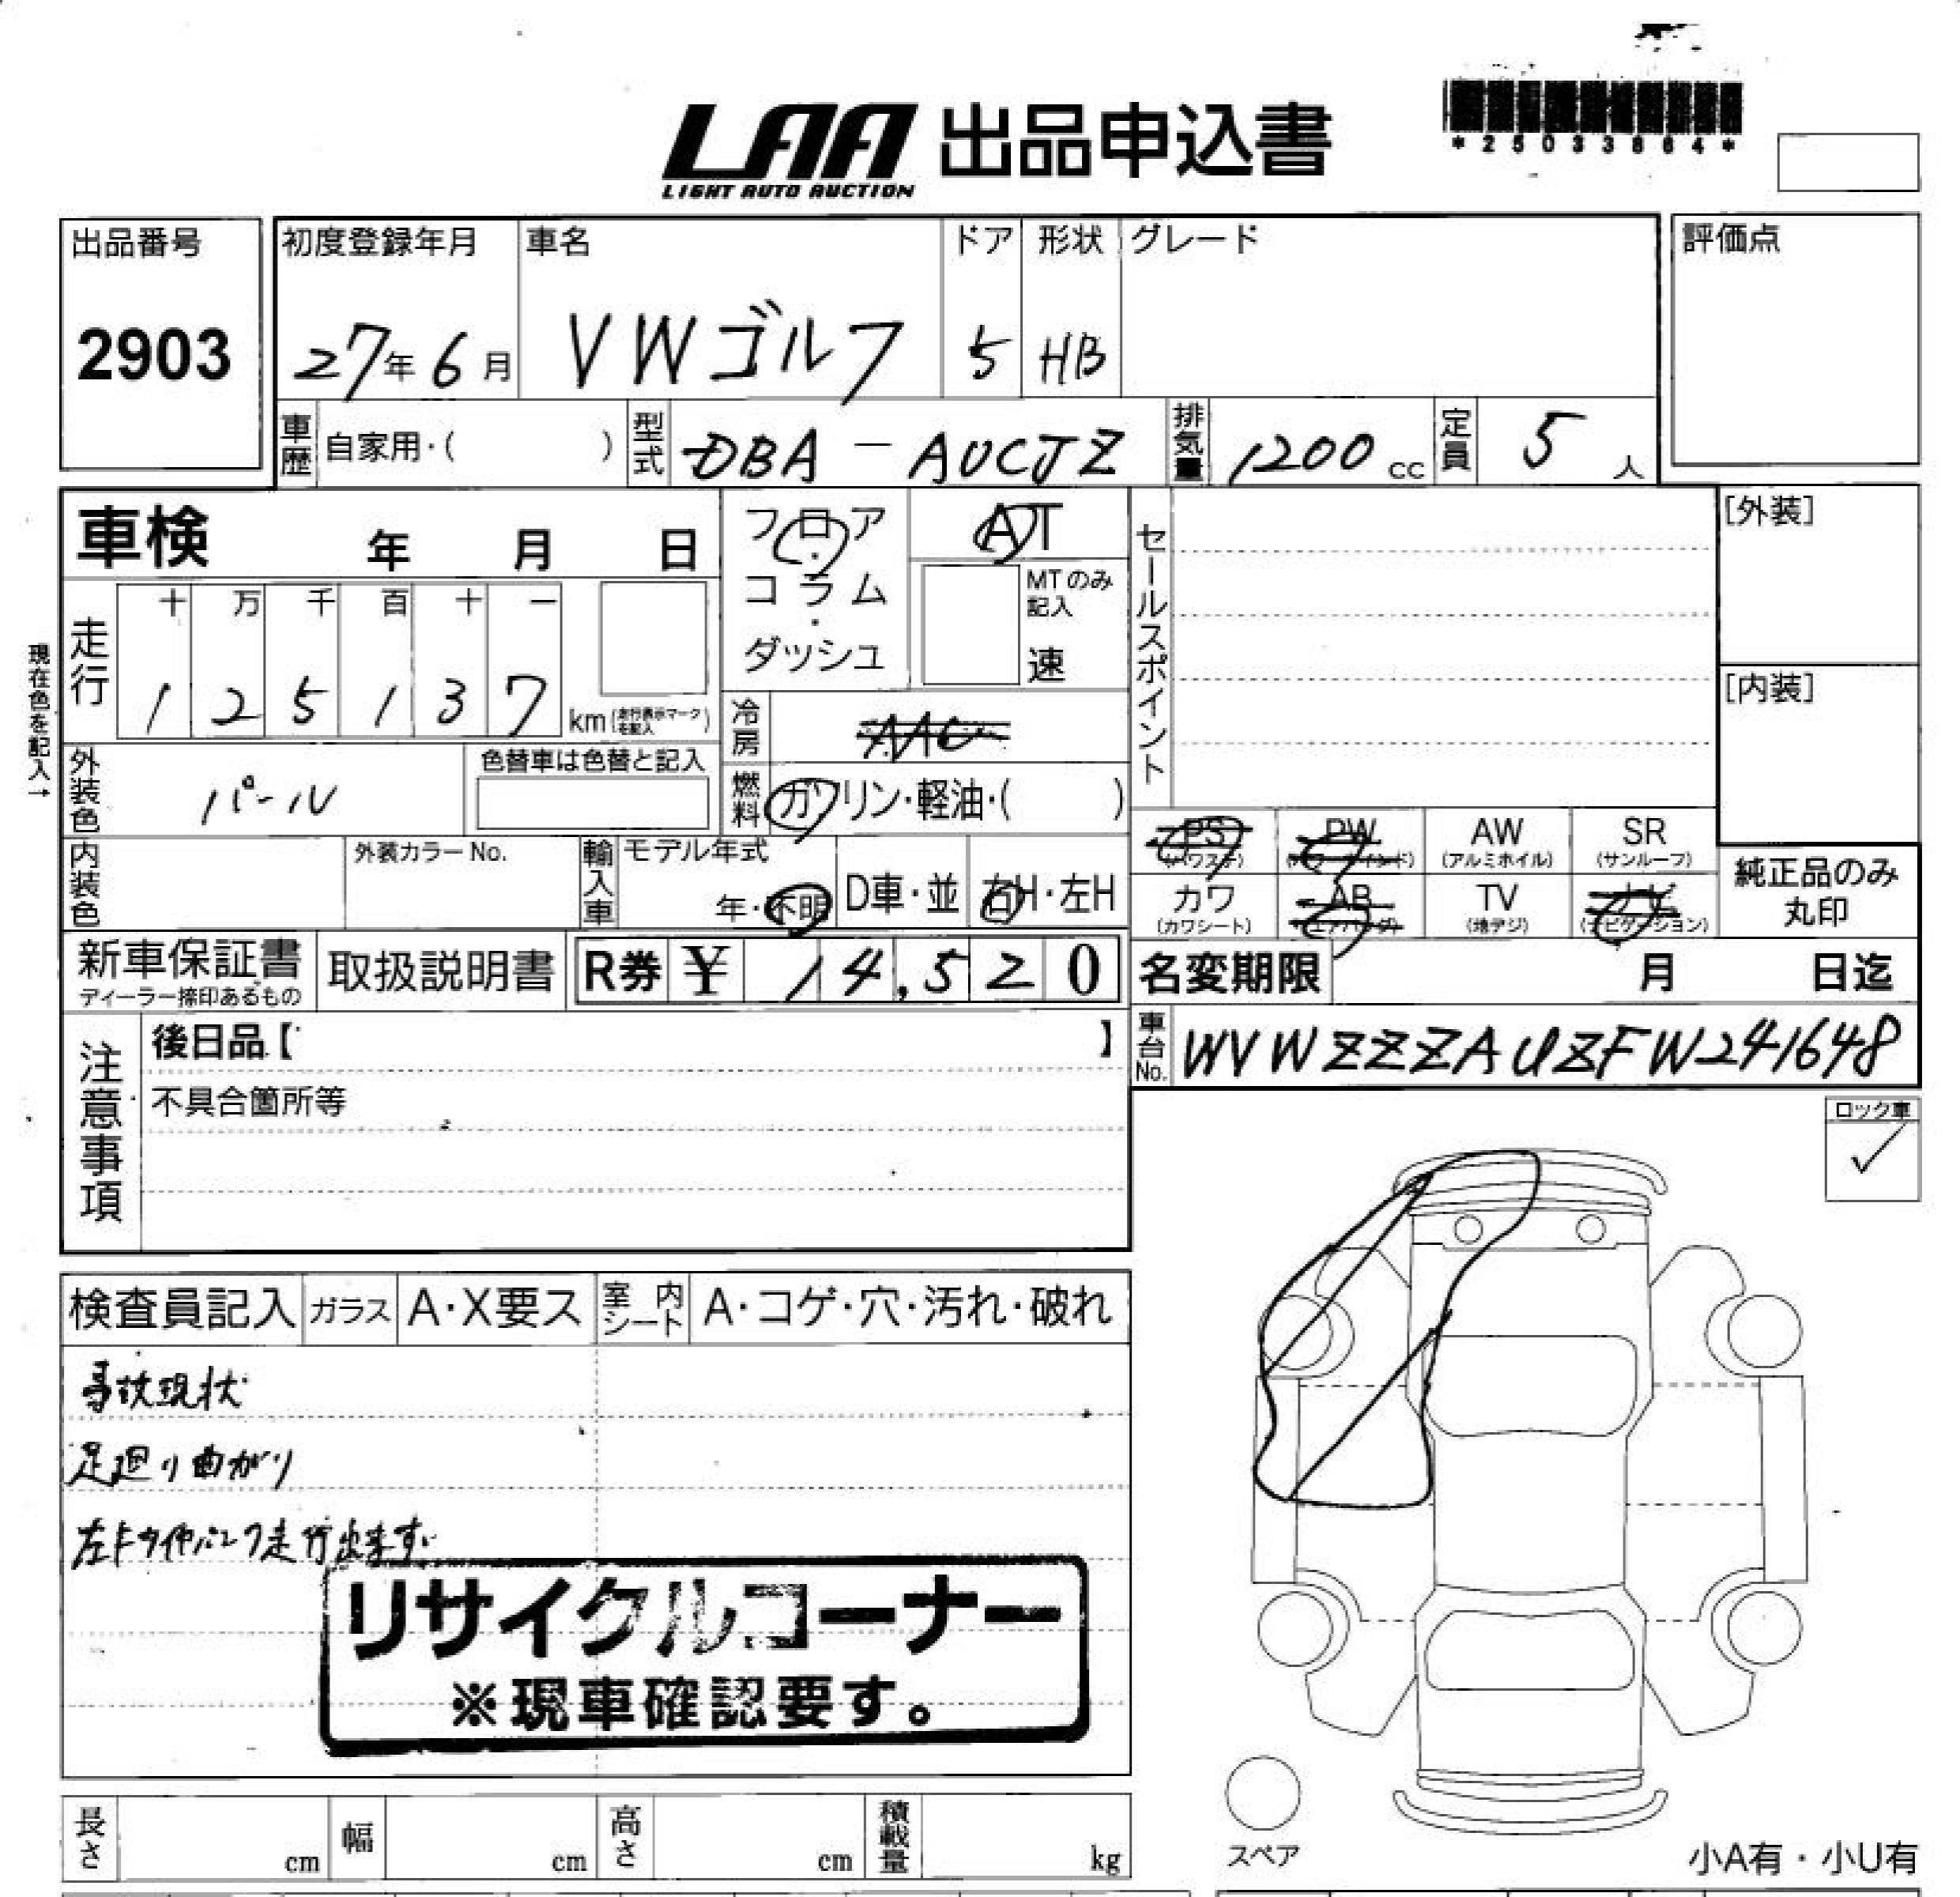 LAA 出品申込書
LIGHT AUTO AUCTION
*25033864*
出品番号 初度登録年月 車名 ドア 形状 グレード 評価点
2903 27年6月 VWゴルフ 5 HB
車歴 自家用・( ) 型式 DBA-AUCJZ 排気量 1200cc 定員 5人
車検 年 月 日
フロア・コラム・ダッシュ
AT
MTのみ記入
速
セールスポイント
[外装]
[内装]
現在色を記入→
走行 十 万 千 百 十 一
1 2 5 1 3 7 km(走行表示マークを記入)
冷房 AAC
外装色 パール 色替車は色替と記入
燃料 ガソリン・軽油・( )
PS (パワステ) PW (パワーウインド) AW (アルミホイル) SR (サンルーフ)
カワ (カワシート) AB (エアバッグ) TV (地デジ) ナビ (ナビゲーション)
純正品のみ丸印
内装色 外装カラーNo. 輸入車 モデル年式 年・不明 D車・並 右H・左H
新車保証書 ディーラー捺印あるもの 取扱説明書 R券 ¥ 14,520
名変期限 月 日迄
車台No. WVWZZZAUZFW241648
注意事項
後日品【 】
不具合箇所等
ロック車
✓
検査員記入 ガラス A・X要ス 室内シート A・コゲ・穴・汚れ・破れ
事故現状
足廻り曲がり
左Fタイヤパンク走行出来ず
リサイクルコーナー
※現車確認要す。
スペア
小A有・小U有
長さ cm 幅 cm 高さ cm 積載量 kg